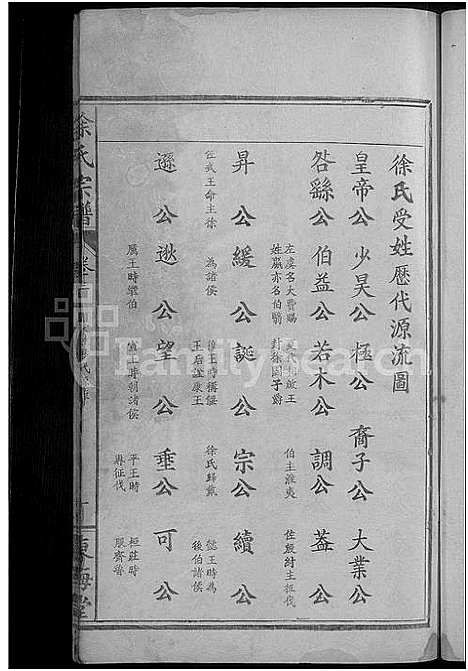 徐氏受姓歷代源流圖
皇帝公 少昊公 極公 裔子公 大業公
咎繇公 伯益公 若木公 調公 蓋公
左虞名大費賜
姓嬴亦名伯翳
夏代 啟王
封徐國子爵
伯主淮夷
佐殷紂主征伐
昇公 緩公 誕公 宗公 續公
在武王命主徐
為諸侯
穆王時稱偃
王后諡康王
徐氏歸戴
懿王時為
後伯諸侯
遜公 逖公 望公 垂公 可公
厲王時爵伯
宣王時朝諸侯
平王時
與征伐
桓莊時
服齊魯
徐氏宗譜
卷
東海堂
FamilySearch